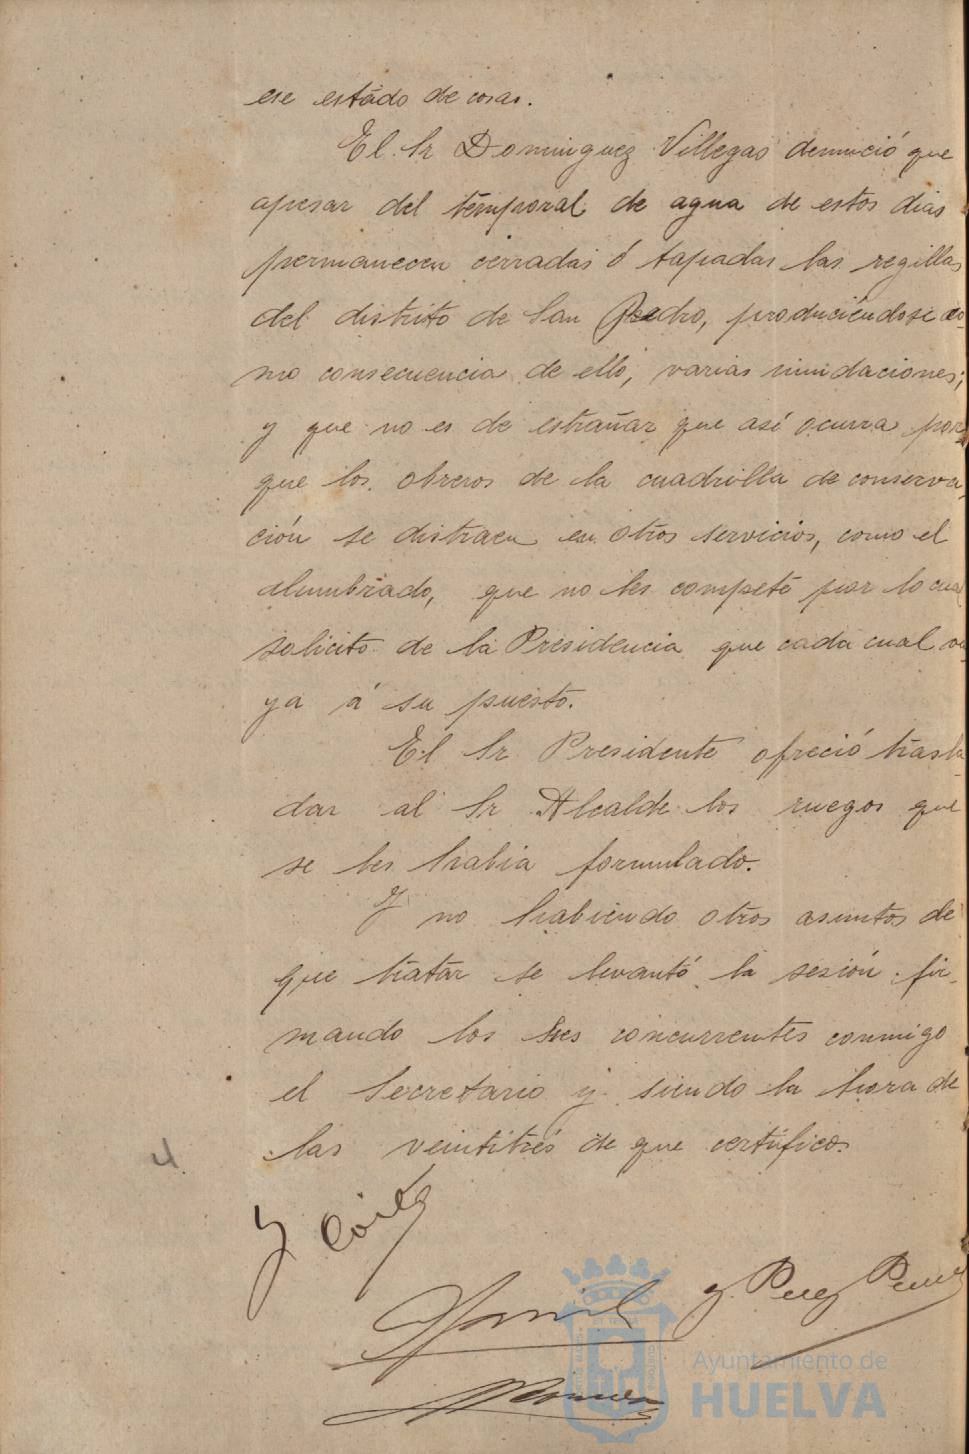 ese estado de cosas.
El Sr Dominguez Villegas denunció que
apesar del temporal de agua de estos dias
permanecen cerradas ó tapadas las regillas
del distrito de San Pedro, produciéndose co-
mo consecuencia de ello, varias inundaciones;
y que no es de estrañar que así ocurra por-
que los obreros de la cuadrilla de conserva-
ción se distraen en otros servicios, como el
alumbrado, que no les compete por lo cual
solicito de la Presidencia que cada cual va-
ya á su puesto.
El Sr Presidente ofreció trasla-
dar al Sr Alcalde los ruegos que
se les habia formulado.
Y no habiendo otros asuntos de
que tratar se levantó la sesión fir-
mando los Sres concurrentes conmigo
el Secretario y siendo la hora de
las veintitrés de que certifico.
Perez
Ayuntamiento de
HUELVA